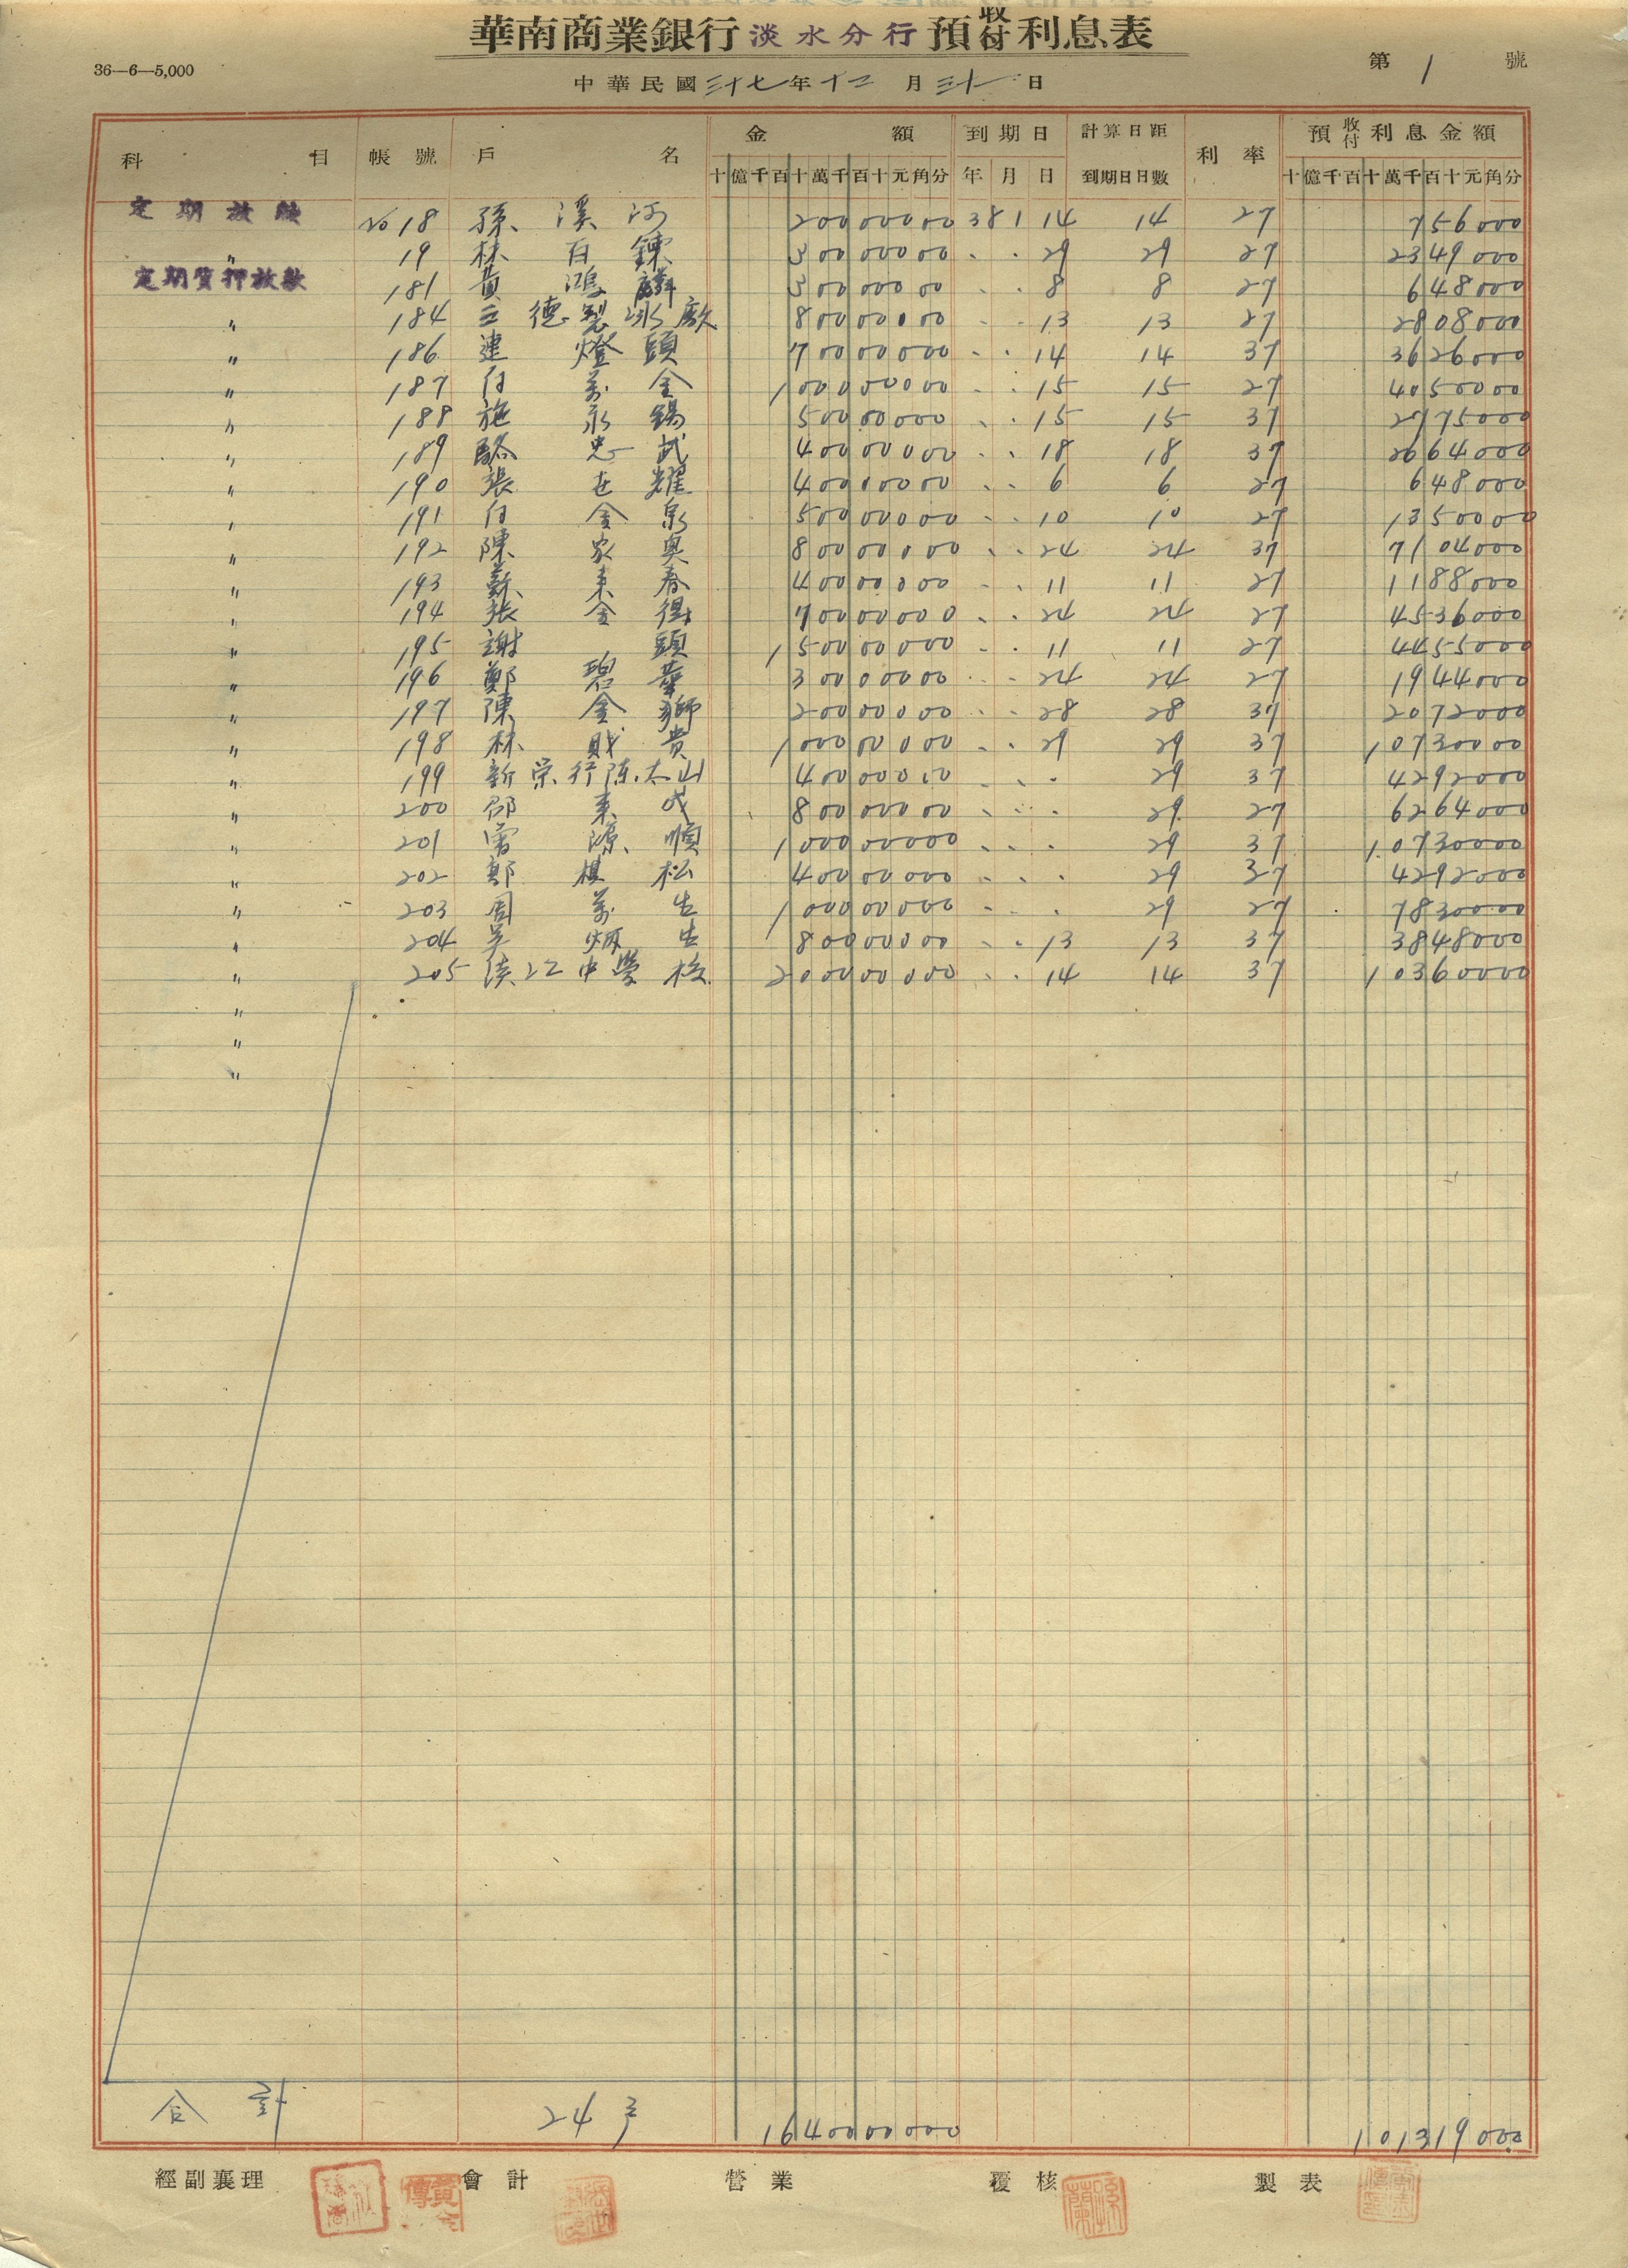 華南商業銀行淡水分行預收付利息表
36—6—5,000
第 1 號
中華民國三十七年十二月三十一日
科目 帳號 戶名 金額 到期日 計算日距到期日日數 利率 預收付利息金額
十億千百十萬千百十元角分 年月日 十億千百十萬千百十元角分
定期放款 No 18 孫溪河 200000000 38 1 14 14 27 756000
〃 19 林百鍊 300000000 · · 29 29 27 2349000
定期質押放款 181 黃鴻麟 300000000 · · 8 8 27 648000
〃 184 三德製冰廠 80000000 · · 13 13 27 2808000
〃 186 連燈頭 70000000 · · 14 14 37 3626000
〃 187 白萬金 100000000 · · 15 15 27 4050000
〃 188 施永錫 50000000 · · 15 15 37 2775000
〃 189 駱忠武 40000000 · · 18 18 37 2664000
〃 190 張世耀 40000000 · · 6 6 27 648000
〃 191 白金泉 50000000 · · 10 10 27 1350000
〃 192 陳家興 80000000 · · 24 24 37 7104000
〃 193 蘇來春 40000000 · · 11 11 27 1188000
〃 194 張金得 70000000 · · 24 24 27 4536000
〃 195 謝頭 150000000 · · 11 11 27 4455000
〃 196 鄭碧華 30000000 · · 24 24 27 1944000
〃 197 陳金獅 20000000 · · 28 28 37 2072000
〃 198 林財貴 100000000 · · 29 29 37 10730000
〃 199 新榮行陳太山 40000000 · · · 29 37 4292000
〃 200 來成 80000000 · · · 29 27 6264000
〃 201 順 100000000 · · · 29 37 10730000
〃 202 鄭棋松 40000000 · · · 29 37 4292000
〃 203 周萬生 100000000 · · · 29 27 7830000
〃 204 吳炳生 80000000 · · 13 13 37 3848000
〃 205 淡江中學校 200000000 · · 14 14 37 10360000
〃
〃
〃
合計 24戶 1640000000 101319000
經副襄理 會計 營業 覆核 製表